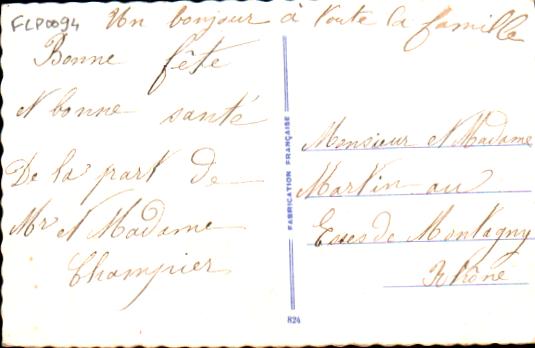 FLP0094
Un bonjour à toute la famille
Bonne fête
et bonne santé
De la part de
Mr et Madame
Champier
FABRICATION FRANÇAISE
824
Monsieur et Madame
Martin au
de Montagny
Rhône